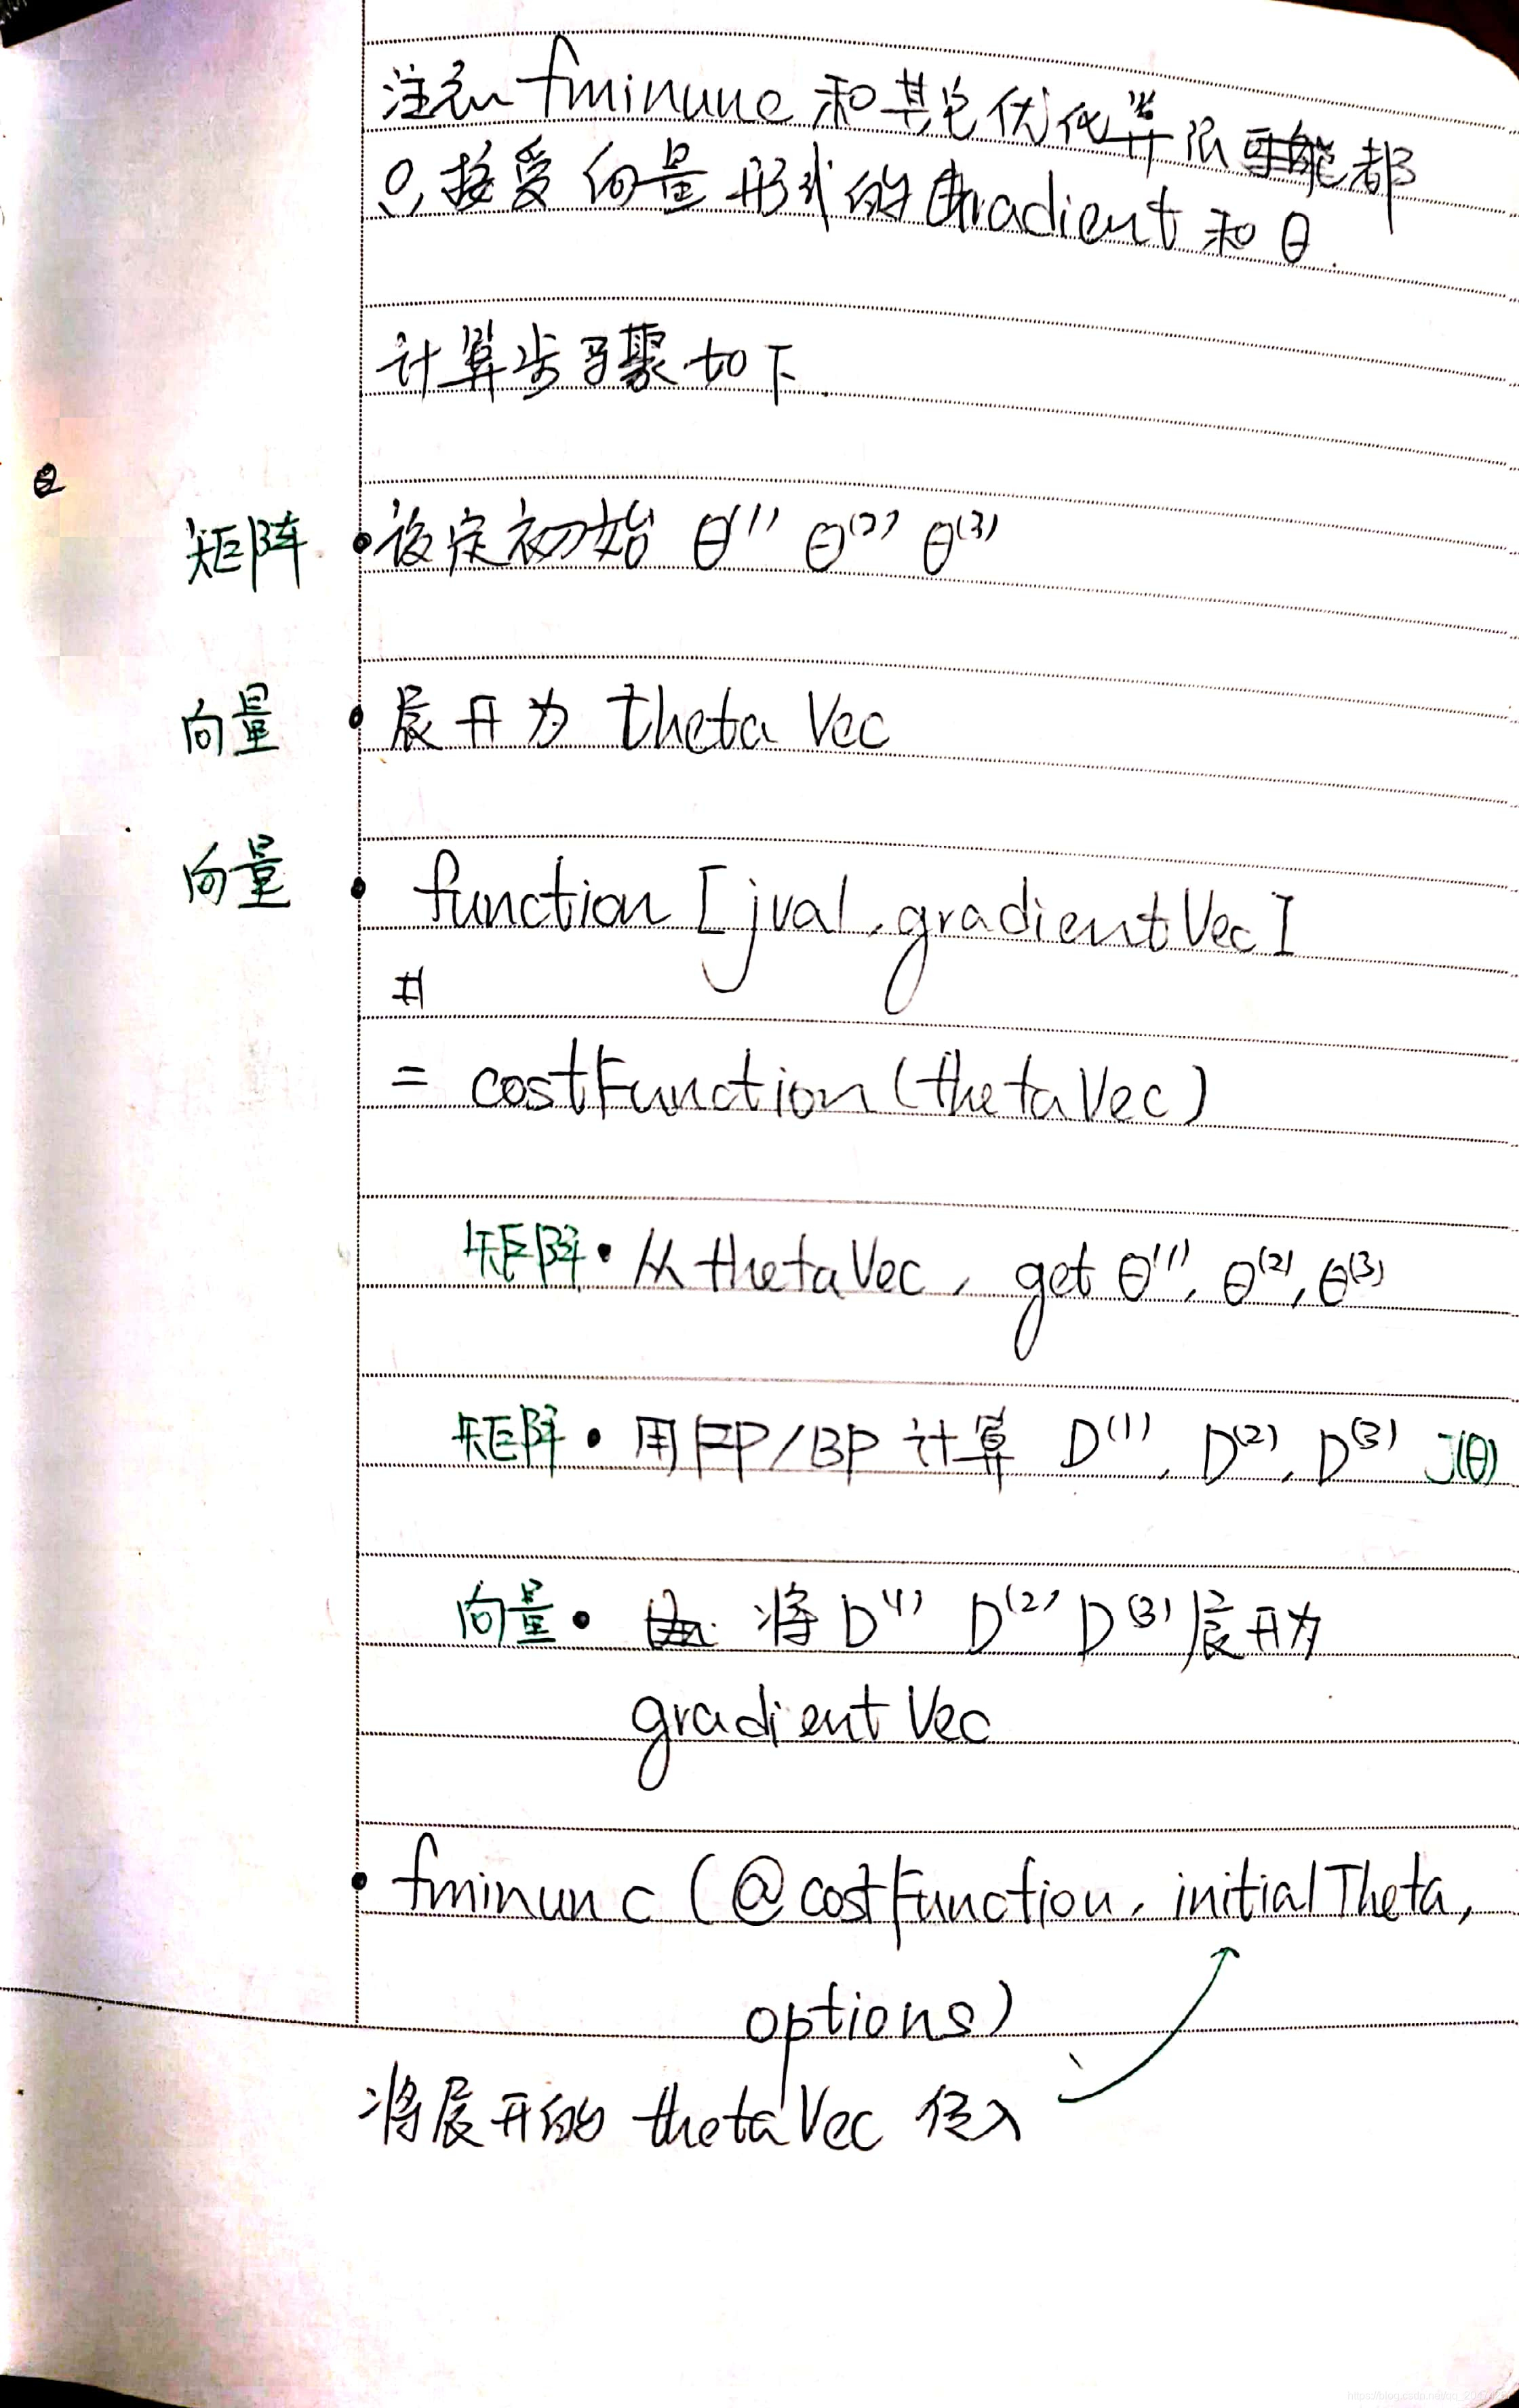 注意 fminunc 和其它优化算法可能都
只接受向量形式的 Gradient 和 θ.
计算步骤如下
矩阵 • 设定初始 θ⁽¹⁾ θ⁽²⁾ θ⁽³⁾
向量 • 展开为 theta Vec
向量 • function [jval, gradientVec]
= costFunction (thetaVec)
矩阵 • 从 thetaVec, get θ⁽¹⁾, θ⁽²⁾, θ⁽³⁾
矩阵 • 用FP/BP 计算 D⁽¹⁾, D⁽²⁾, D⁽³⁾ J(θ)
向量 • 将 D⁽¹⁾ D⁽²⁾ D⁽³⁾ 展开为
gradient Vec
• fminunc (@costFunction, initialTheta,
options)
将展开的 thetaVec 传入